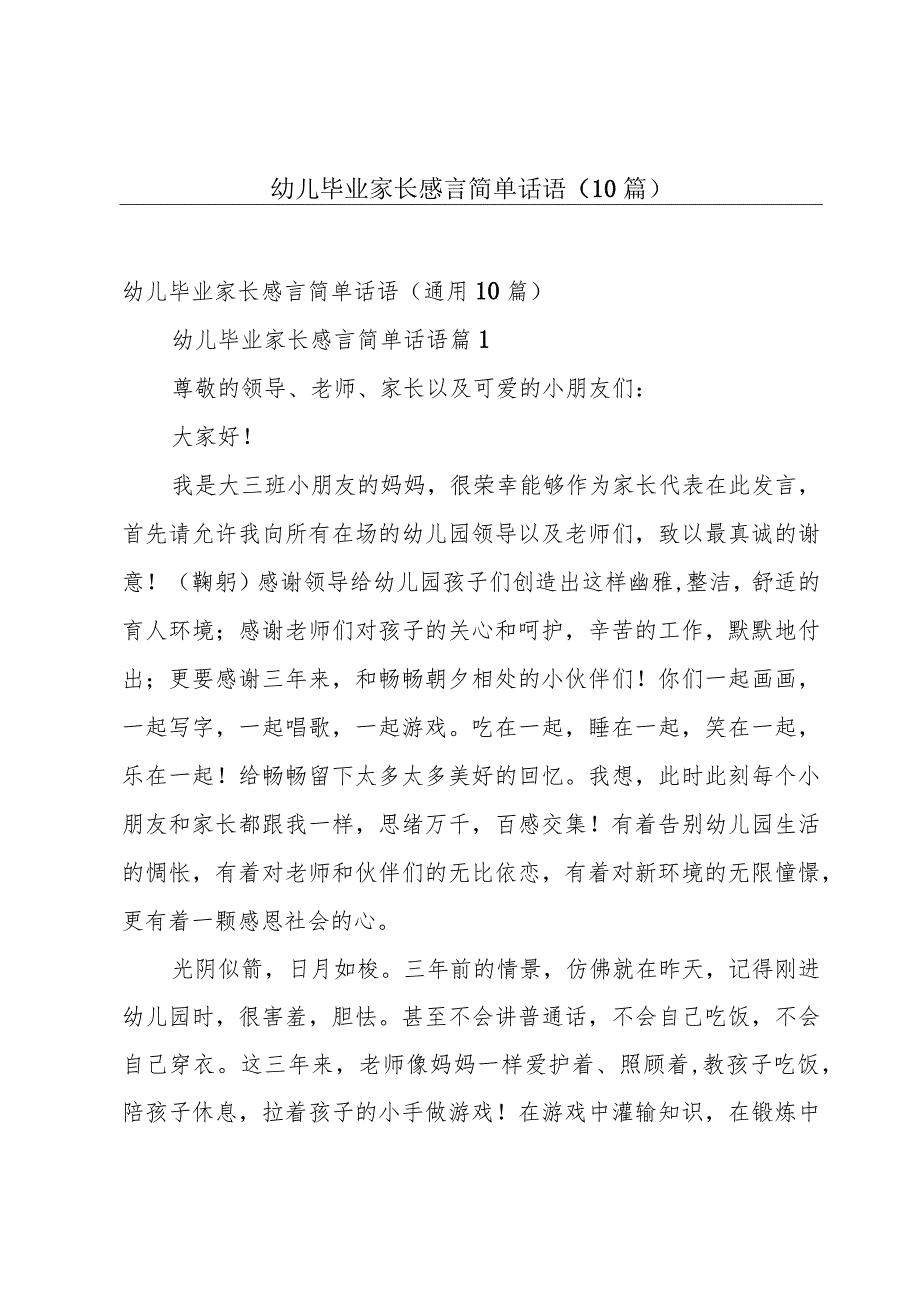 幼儿毕业家长感言简单话语（10 篇）
幼儿毕业家长感言简单话语（通用 10 篇）
幼儿毕业家长感言简单话语篇 1
尊敬的领导、老师、家长以及可爱的小朋友们：
大家好！
我是大三班小朋友的妈妈，很荣幸能够作为家长代表在此发言，
首先请允许我向所有在场的幼儿园领导以及老师们，致以最真诚的谢
意！（鞠躬）感谢领导给幼儿园孩子们创造出这样幽雅,整洁，舒适的
育人环境；感谢老师们对孩子的关心和呵护，辛苦的工作，默默地付
出；更要感谢三年来，和畅畅朝夕相处的小伙伴们！你们一起画画，
一起写字，一起唱歌，一起游戏。吃在一起，睡在一起，笑在一起，
乐在一起！给畅畅留下太多太多美好的回忆。我想，此时此刻每个小
朋友和家长都跟我一样，思绪万千，百感交集！有着告别幼儿园生活
的惆怅，有着对老师和伙伴们的无比依恋，有着对新环境的无限憧憬，
更有着一颗感恩社会的心。
光阴似箭，日月如梭。三年前的情景，仿佛就在昨天，记得刚进
幼儿园时，很害羞，胆怯。甚至不会讲普通话，不会自己吃饭，不会
自己穿衣。这三年来，老师像妈妈一样爱护着、照顾着,教孩子吃饭，
陪孩子休息，拉着孩子的小手做游戏！在游戏中灌输知识，在锻炼中